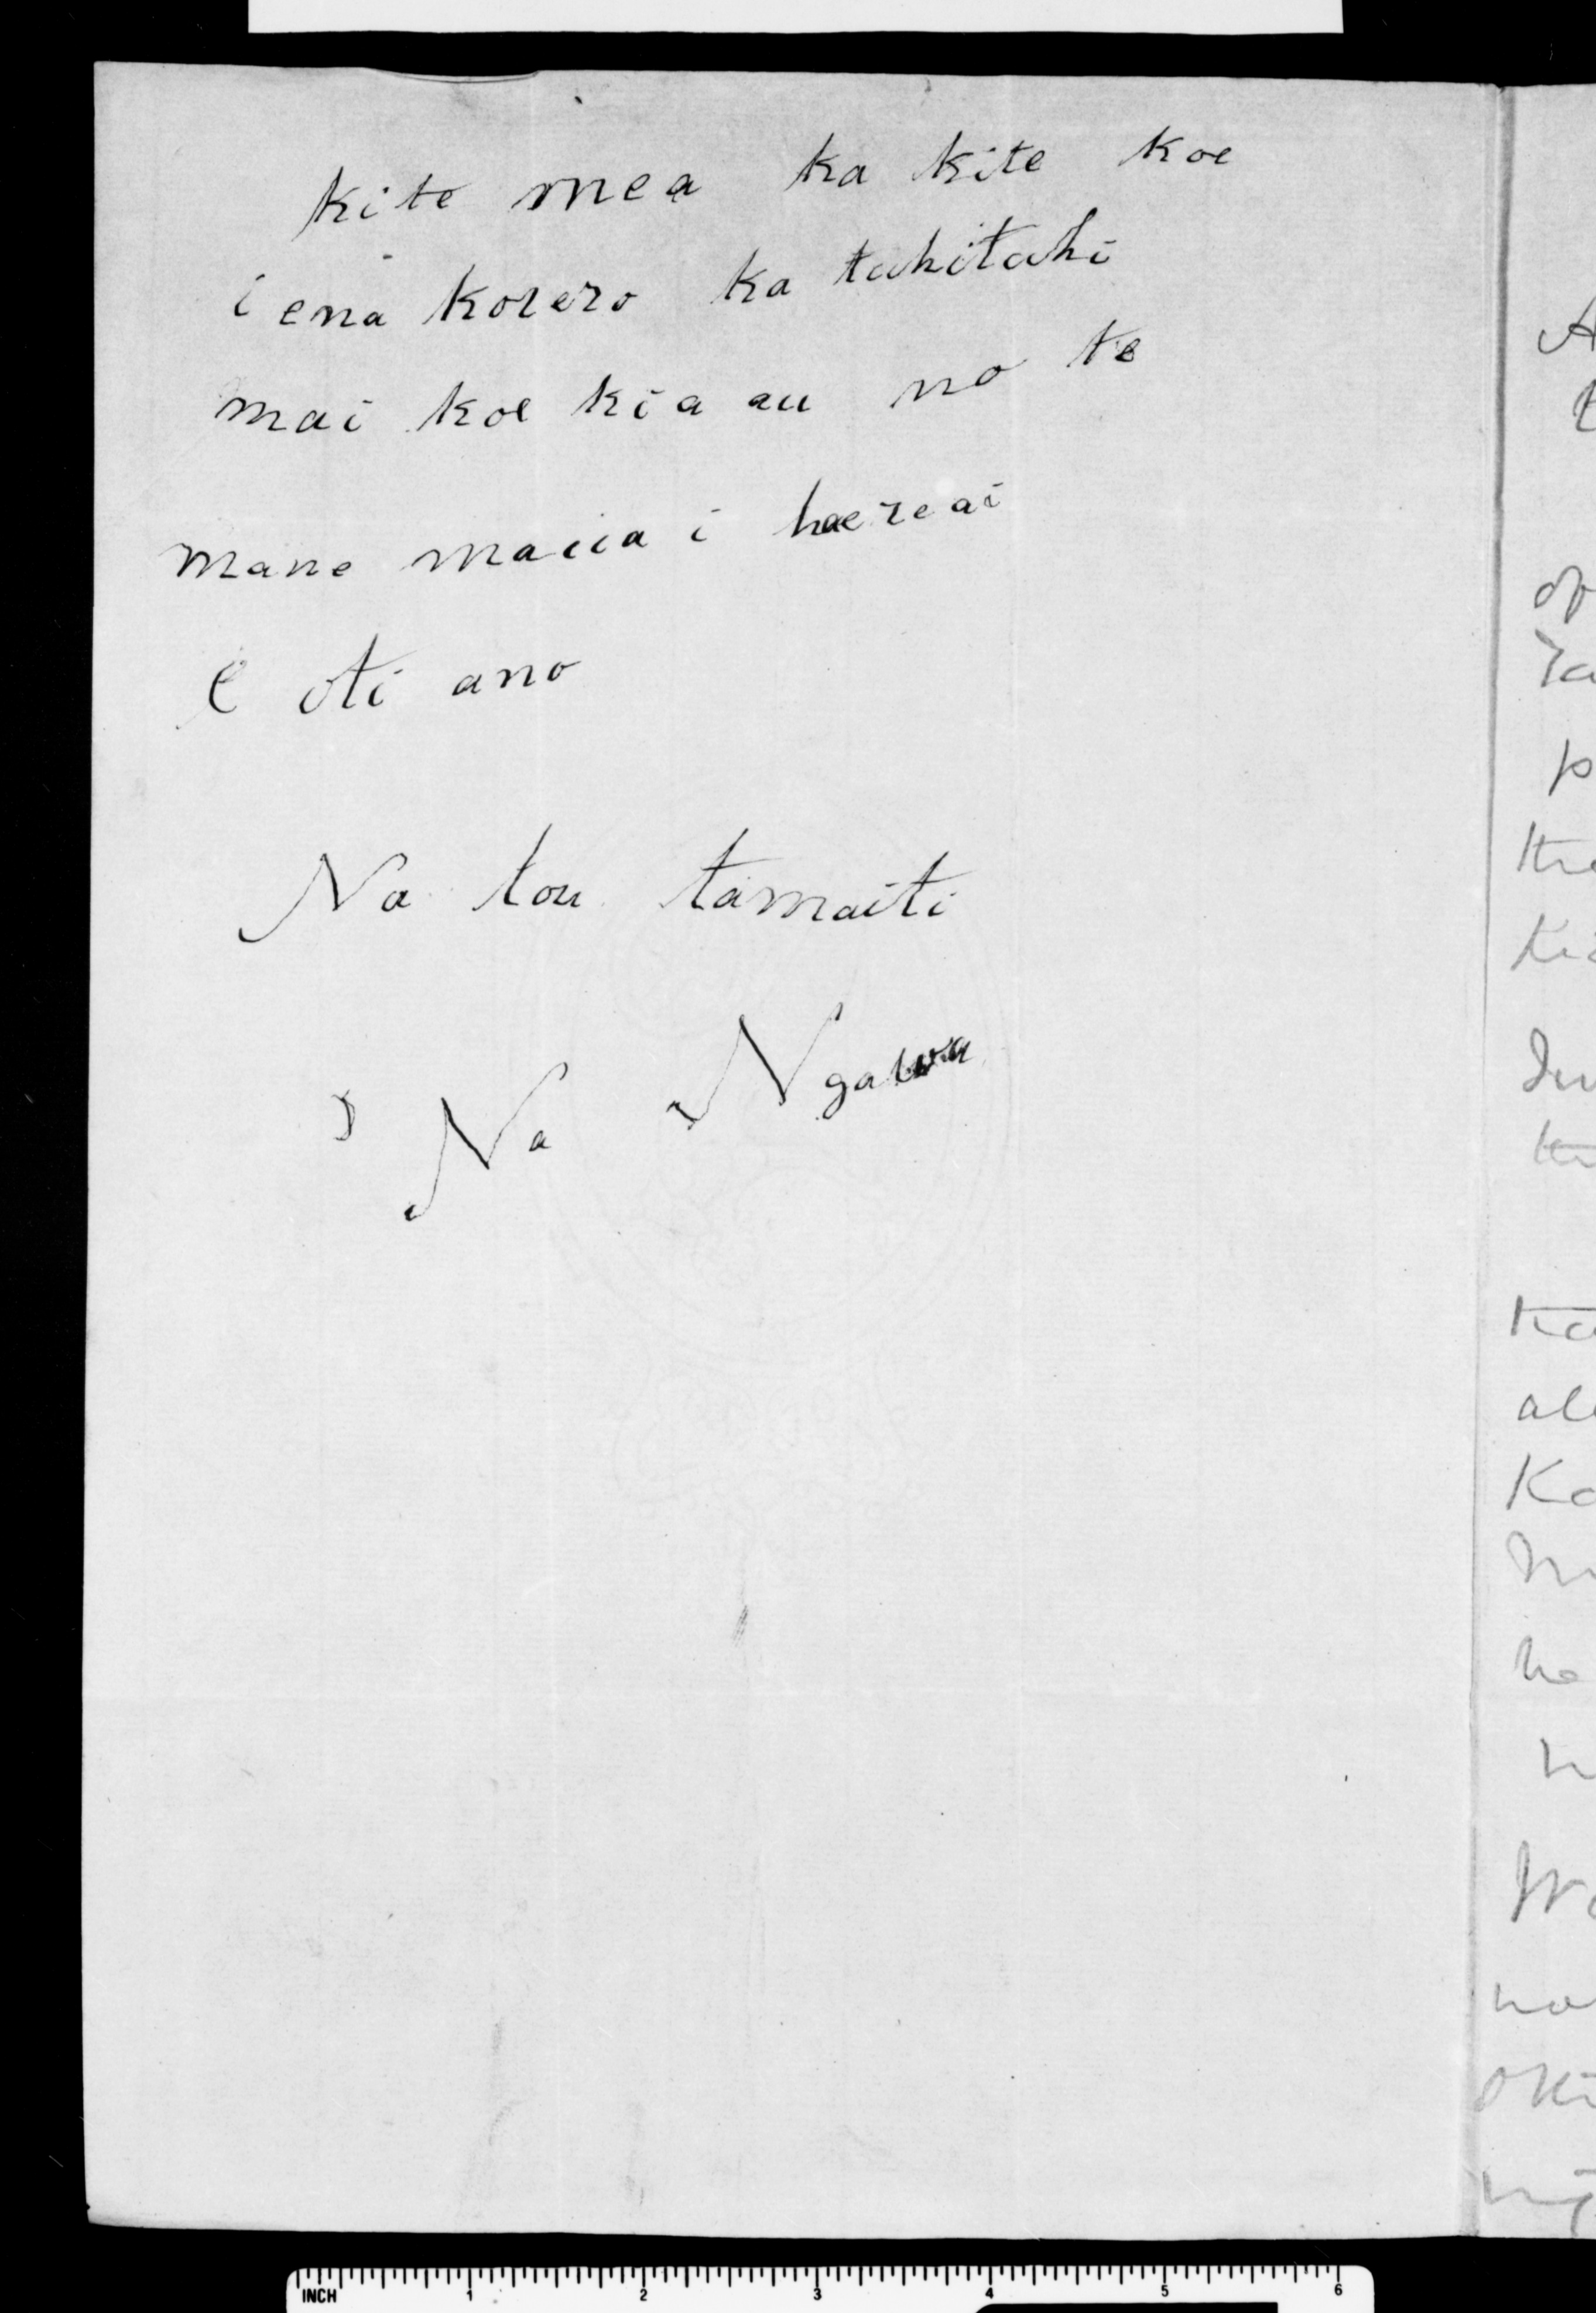 kite mea ka kite koe
i ena korero ka tuhituhi
mai koe kia au no te
mane maua i haere ai
e oti ano
Na tou tamaiti
Na Ngawa
INCH 1 2 3 4 5 6